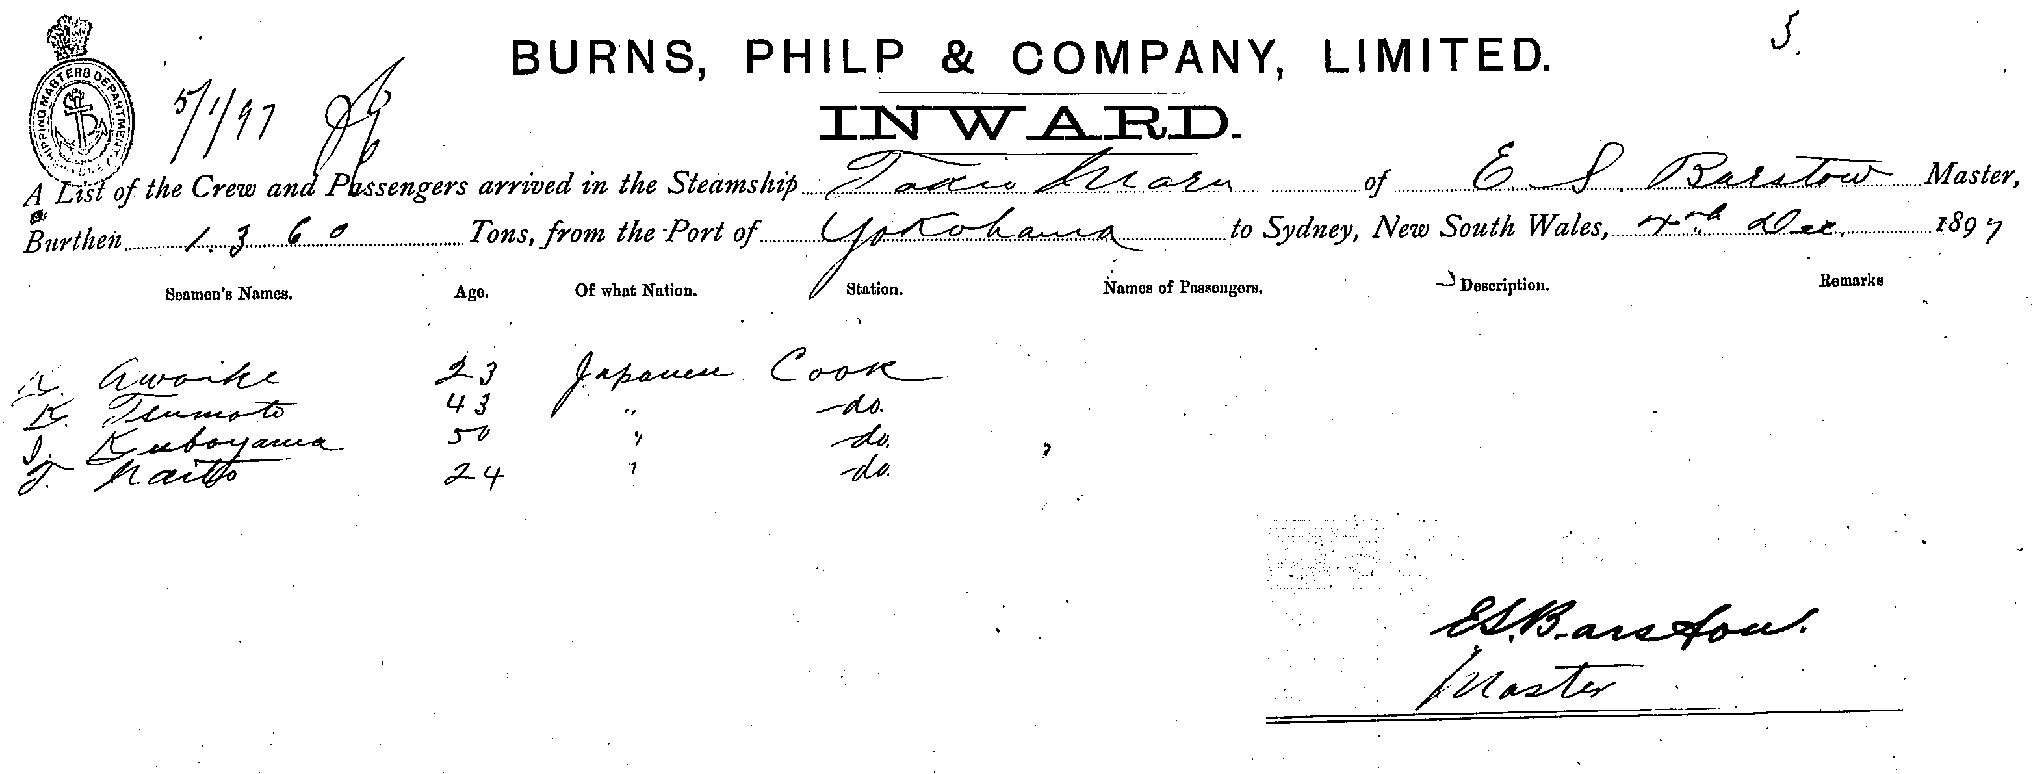 5.
BURNS, PHILP & COMPANY, LIMITED.
SHIPPING MASTERS DEPARTMENT
5/1/97
INWARD.
A List of the Crew and Passengers arrived in the Steamship Maru of E S. Barstow Master,
Burthen 1360 Tons, from the Port of Yokohama to Sydney, New South Wales, Dec. 1897
Seamen's Names. Age. Of what Nation. Station. Names of Passengers. Description. Remarks
K. Awoike 23 Japanese Cook
K. Tsumoto 43 " do.
I. Kuboyama 50 " do.
T. Naito 24 " do.
E S. Barstow.
Master